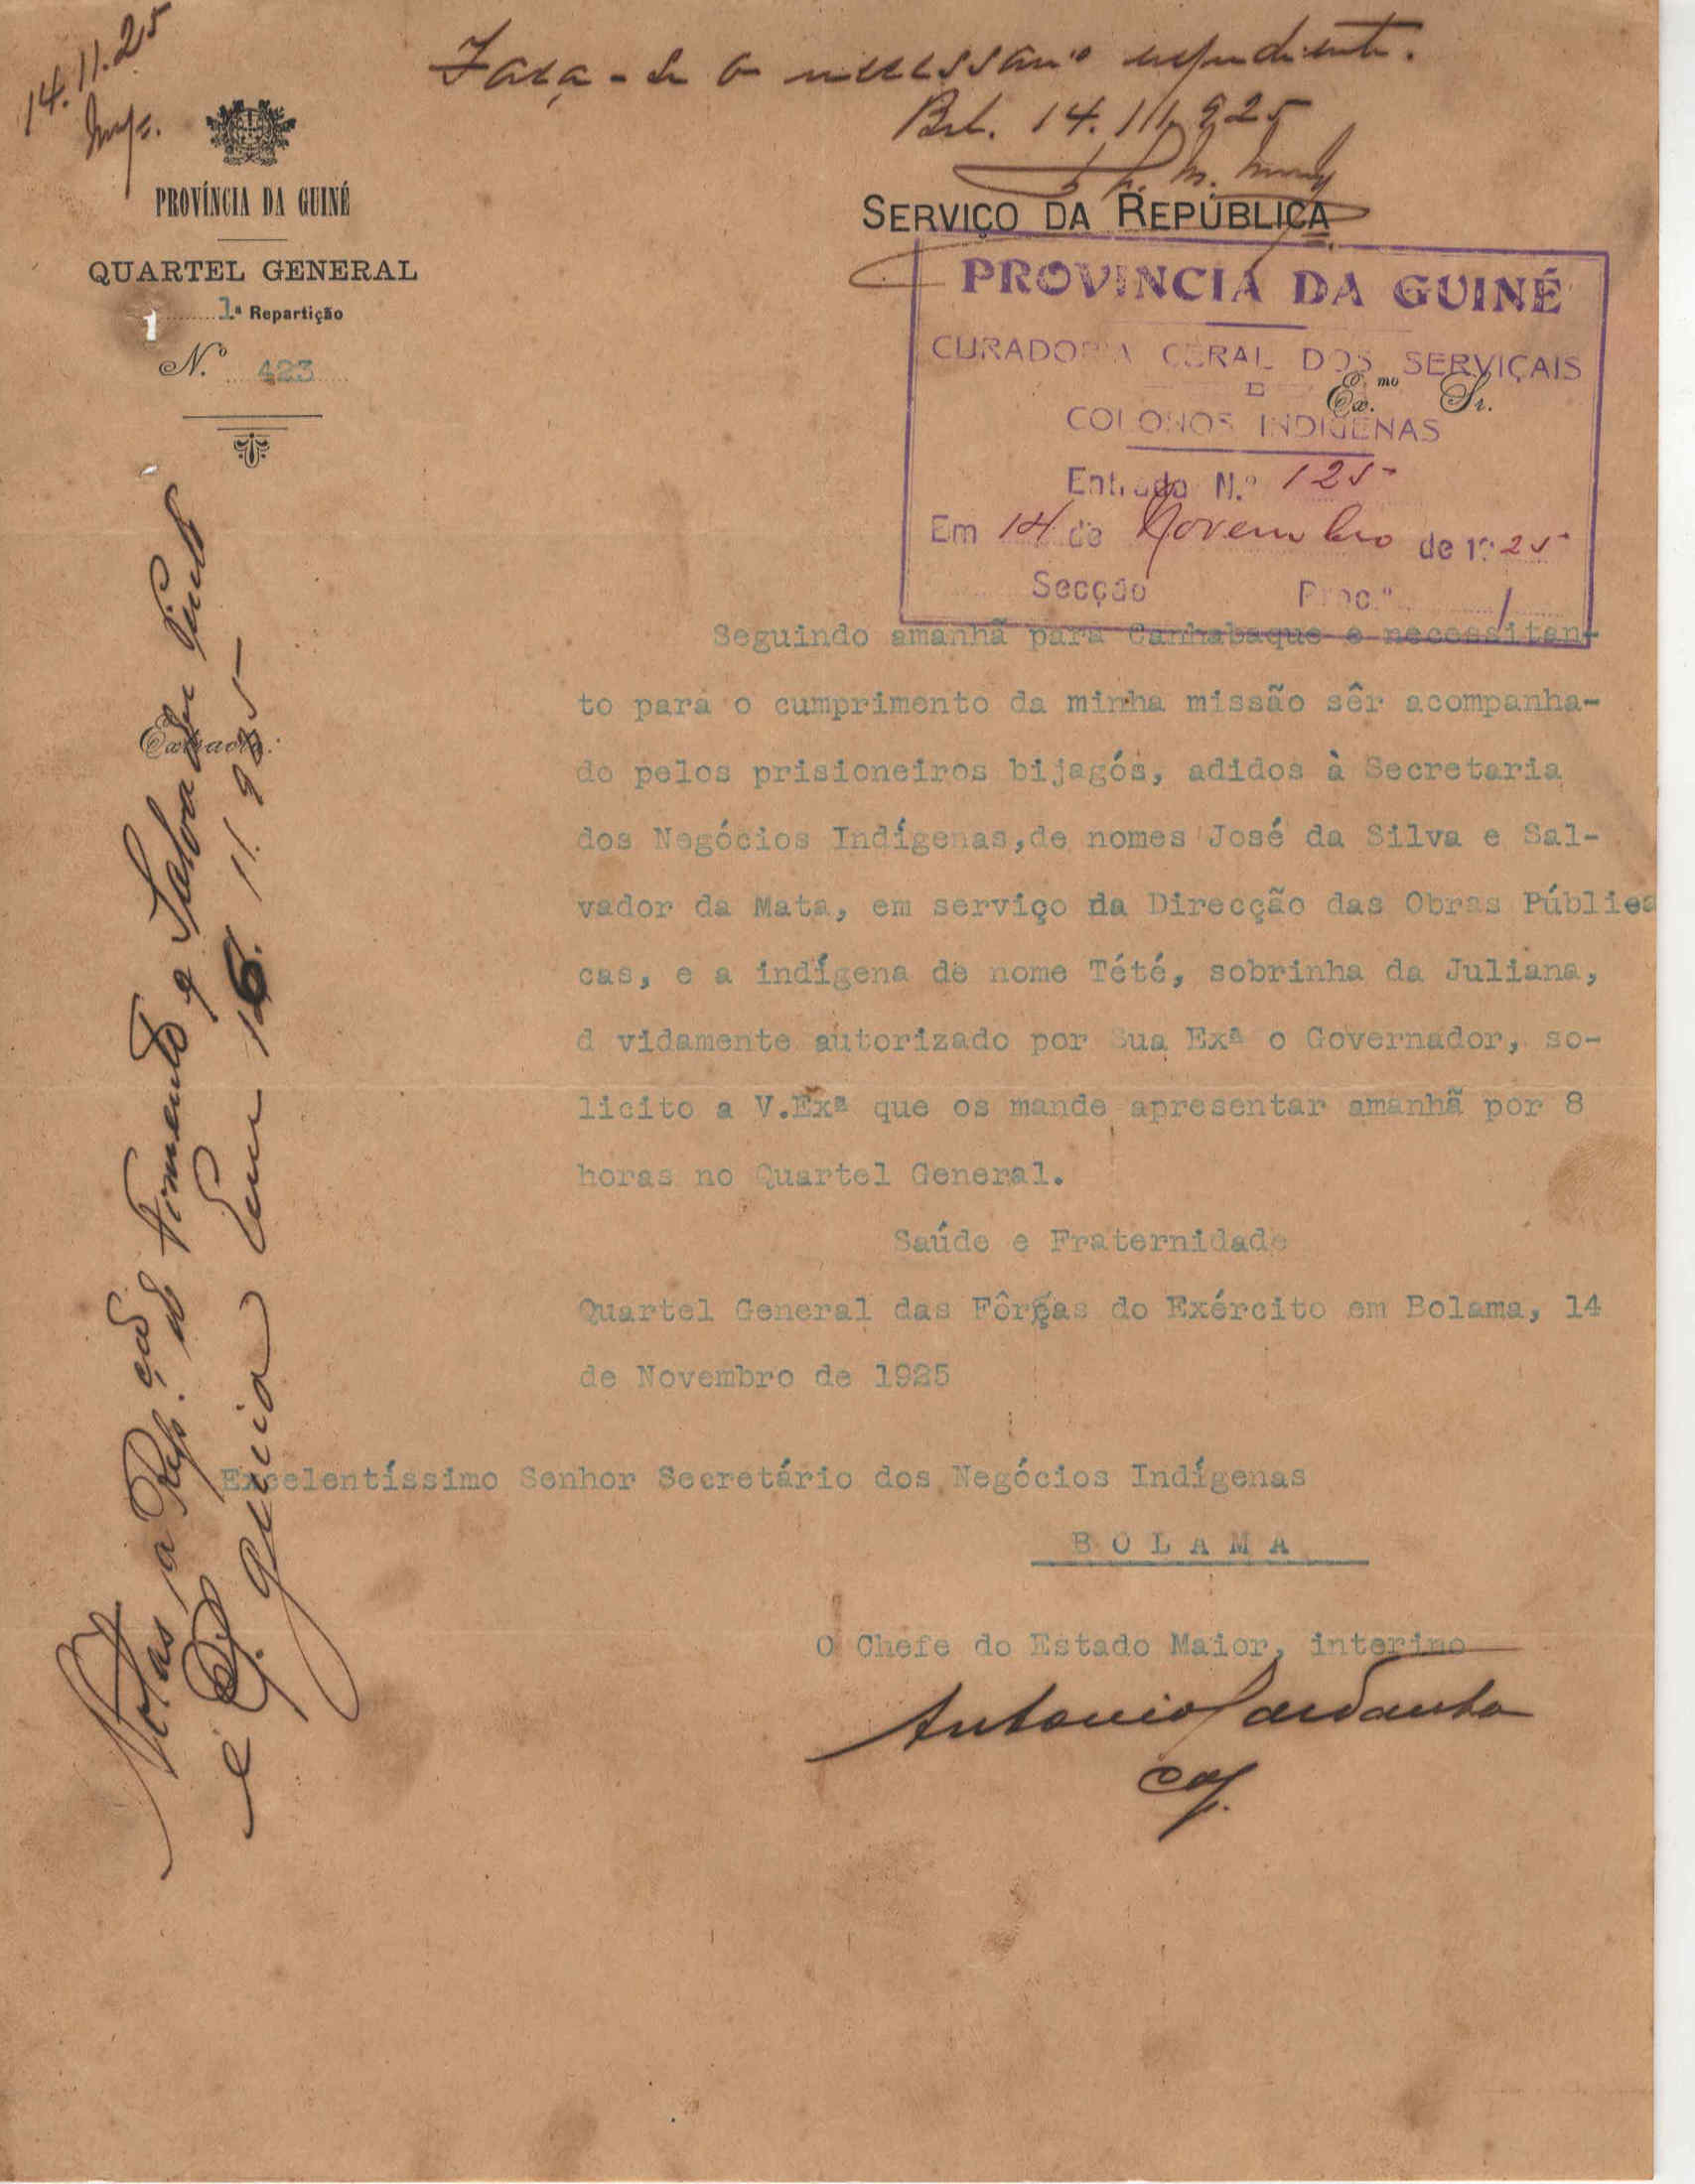 14.11.25
Faça-se o necessario expediente.
Bol. 14.11.925
PROVÍNCIA DA GUINÉ
QUARTEL GENERAL
1.ª Repartição
N.º 423
SERVIÇO DA REPÚBLICA
PROVINCIA DA GUINÉ
CURADORIA GERAL DOS SERVIÇAIS
E
COLONOS INDIGENAS
Ex.mo Sr.
Entrada N.º 125
Em 14 de Novembro de 1925
Secção Proc.º 1
Seguindo amanhã para Canhabaque e necessitan-
to para o cumprimento da minha missão sêr acompanha-
do pelos prisioneiros bijagós, adidos à Secretaria
dos Negócios Indígenas,de nomes José da Silva e Sal-
vador da Mata, em serviço da Direcção das Obras Públics
cas, e a indígena de nome Tété, sobrinha da Juliana,
d vidamente autorizado por Sua Exª o Governador, so-
licito a V.Exª que os mande apresentar amanhã por 8
horas no Quartel General.
Saúde e Fraternidade
Quartel General das Fôrças do Exército em Bolama, 14
de Novembro de 1925
Excelentíssimo Senhor Secretário dos Negócios Indígenas
BOLAMA
O Chefe do Estado Maior, interino
Antonio Sardanha
cap.
Extracto:
Notas a Rep.ção do Fomento e Salvador Pinto
e Em 16.11.925